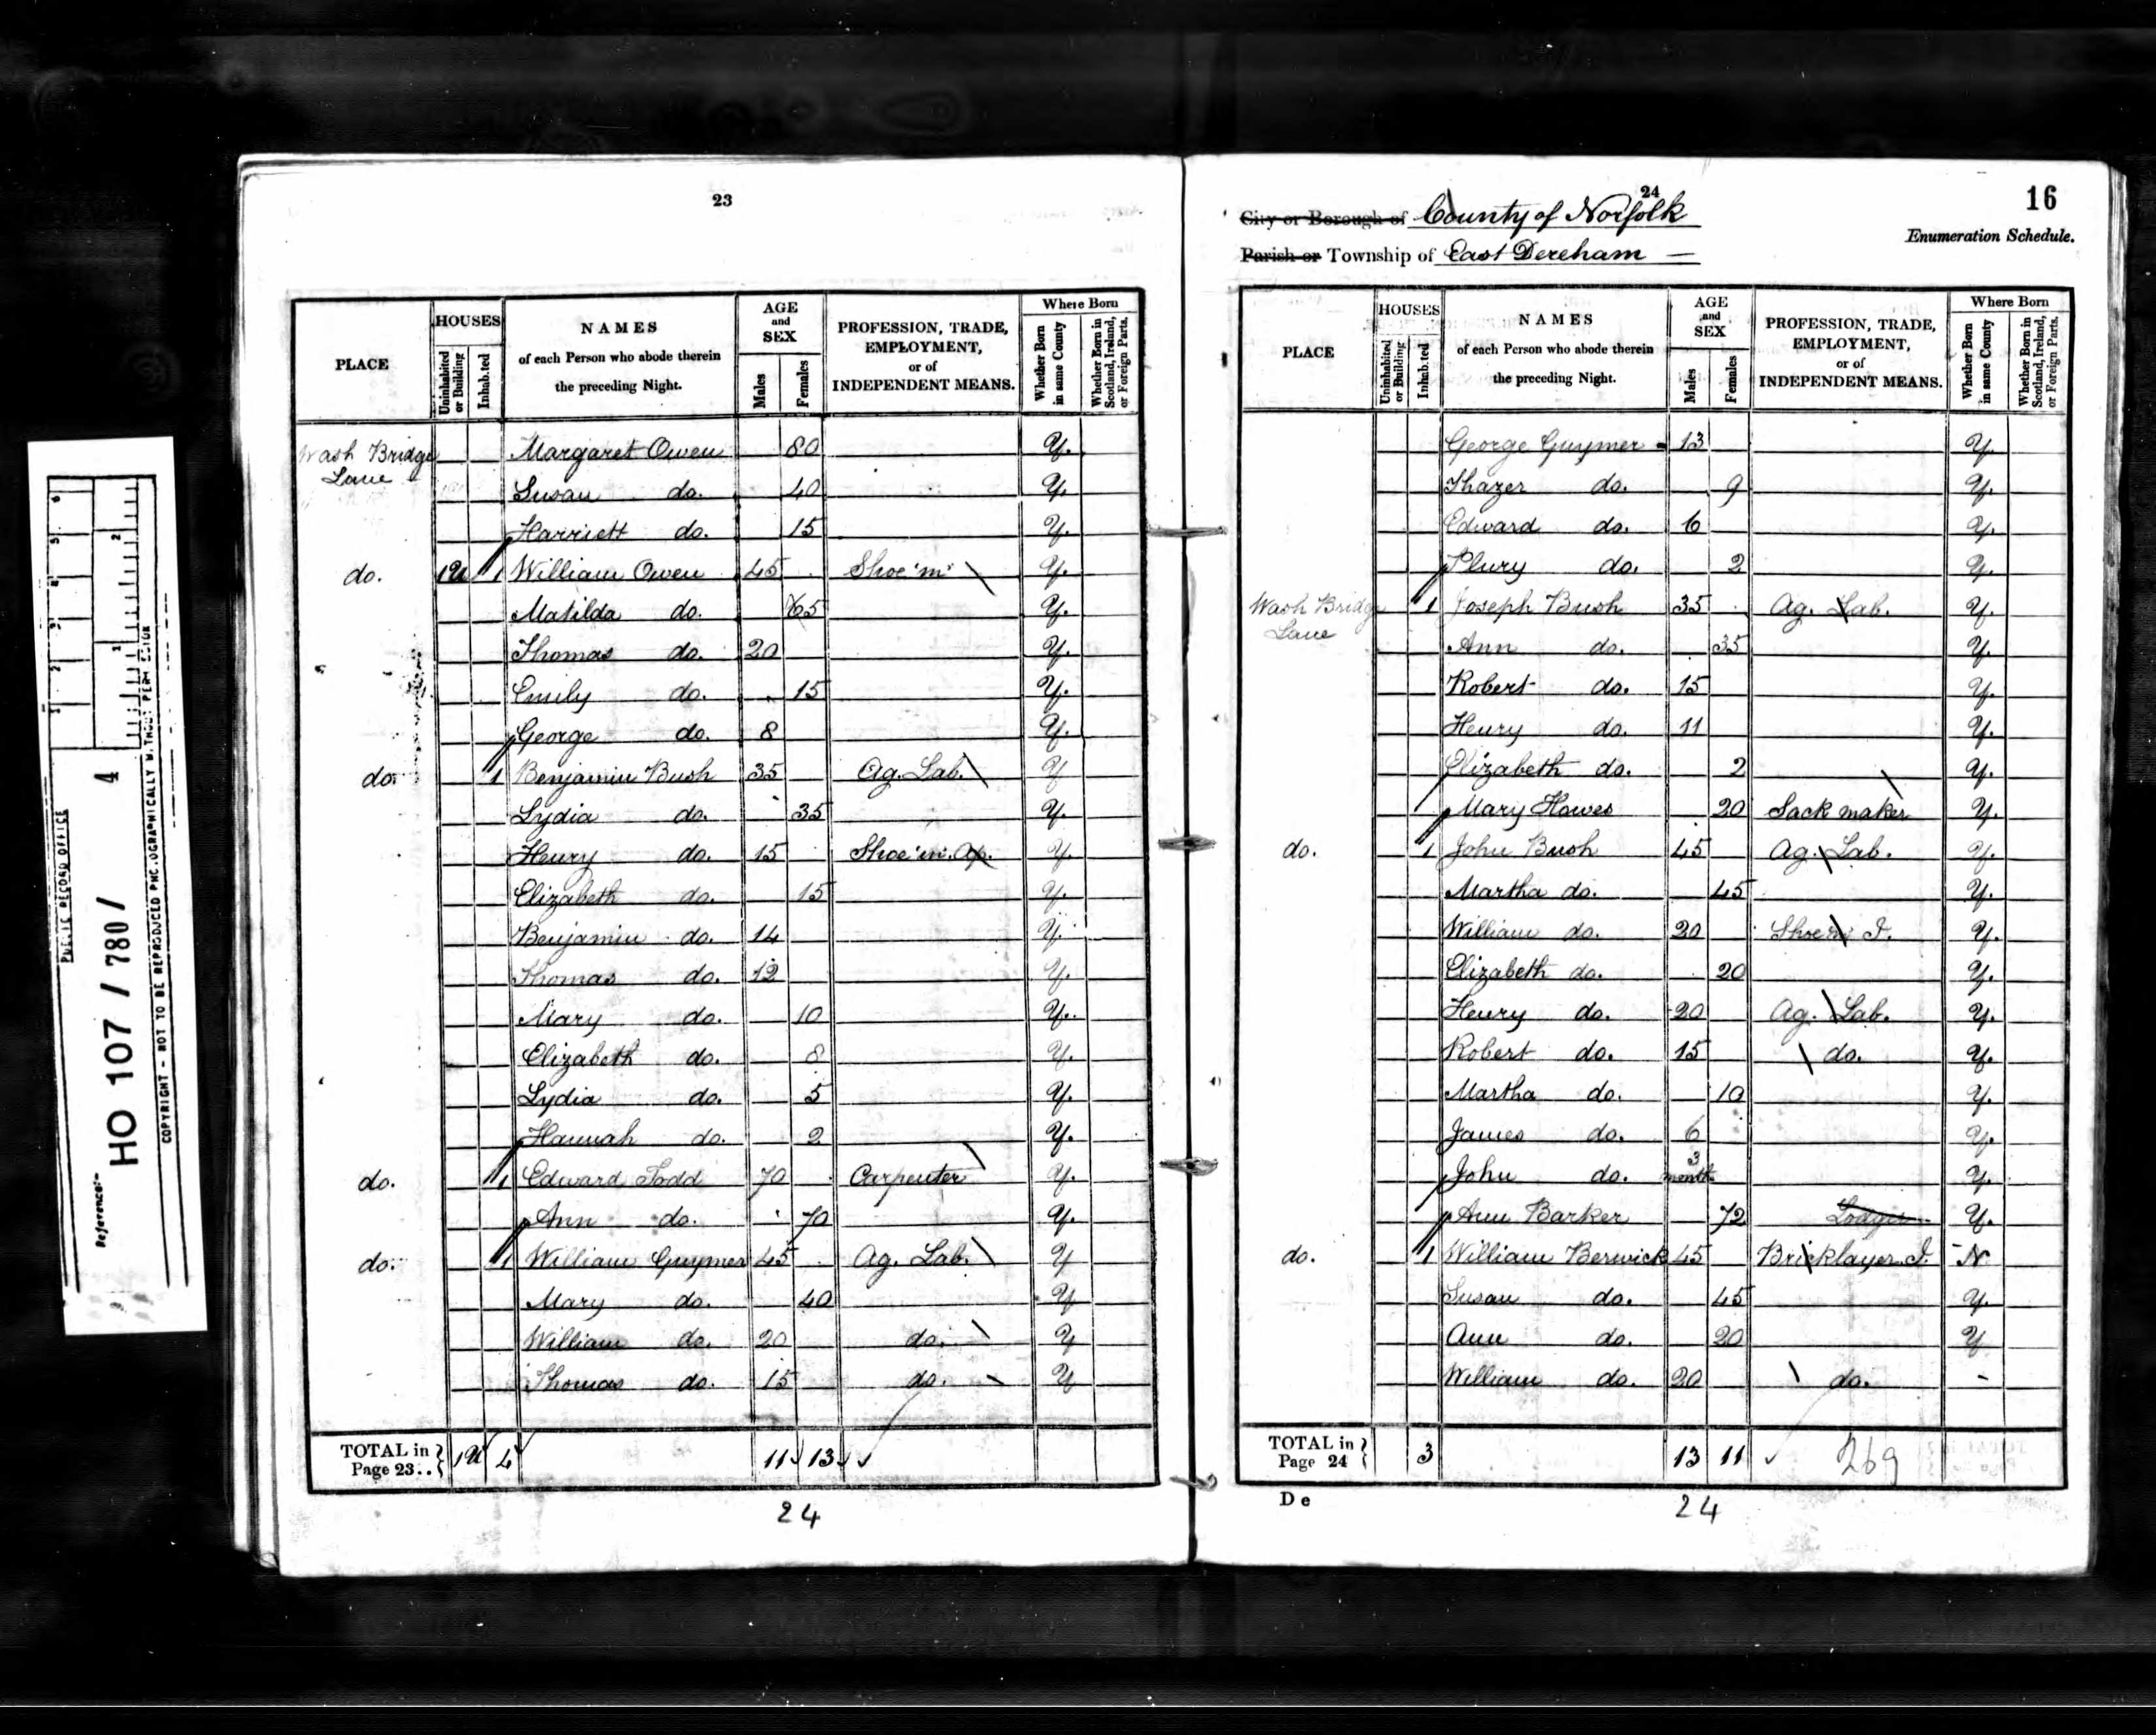 23
PLACE
HOUSES
Uninhabited or Building
Inhabited
NAMES
of each Person who abode therein
the preceding Night.
AGE
and
SEX
Males
Females
PROFESSION, TRADE,
EMPLOYMENT,
or of
INDEPENDENT MEANS.
Where Born
Whether Born in same County
Whether Born in Scotland, Ireland, or Foreign Parts.
Wash Bridge Margaret Owen 80 Y.
Lane Susan do. 40 Y.
Harriett do. 15 Y.
do. 1U 1 William Owen 45 Shoe m Y.
Matilda do. 65 Y.
Thomas do. 20 Y.
Emily do. 15 Y.
George do. 8 Y.
do. 1 Benjamin Bush 35 Ag. Lab. Y
Lydia do. 35 Y.
Henry do. 15 Shoe m. Ap. Y.
Elizabeth do. 15 Y.
Benjamin do. 14 Y.
Thomas do. 12 Y.
Mary do. 10 Y.
Elizabeth do. 8 Y.
Lydia do. 5 Y.
Hannah do. 2 Y.
do. 1 Edward Todd 70 Carpenter Y.
Ann do. 70 Y.
do. 1 William Guymer 45 Ag. Lab. Y
Mary do. 40 Y
William do. 20 do. Y
Thomas do. 15 do. Y
TOTAL in
Page 23.. 1U 4 11 13
24
24
16
City or Borough of County of Norfolk
Enumeration Schedule.
Parish or Township of East Dereham
PLACE
HOUSES
Uninhabited or Building
Inhabited
NAMES
of each Person who abode therein
the preceding Night.
AGE
and
SEX
Males
Females
PROFESSION, TRADE,
EMPLOYMENT,
or of
INDEPENDENT MEANS.
Where Born
Whether Born in same County
Whether Born in Scotland, Ireland, or Foreign Parts.
George Guymer 13 Y.
Thazer do. 9 Y.
Edward do. 6 Y.
Plury do. 2 Y.
Wash Bridge 1 Joseph Bush 35 Ag. Lab. Y.
Lane Ann do. 35 Y.
Robert do. 15 Y.
Henry do. 11 Y.
Elizabeth do. 2 Y.
Mary Howes 20 Sack maker Y.
do. 1 John Bush 45 Ag. Lab. Y.
Martha do. 45 Y.
William do. 20 Shoe m J. Y.
Elizabeth do. 20 Y.
Henry do. 20 Ag. Lab. Y.
Robert do. 15 do. Y.
Martha do. 10 Y.
James do. 6 Y.
John do. 3 month Y.
Ann Barker 72 Lodger Y.
do. 1 William Berwick 45 Bricklayer J. N
Susan do. 45 Y.
Ann do. 20 Y
William do. 20 do. -
TOTAL in
Page 24 3 13 11
269
De
24
PUBLIC RECORD OFFICE
Reference:-
HO 107 / 780 /
4
COPYRIGHT - NOT TO BE REPRODUCED PHOTOGRAPHICALLY WITHOUT PERMISSION